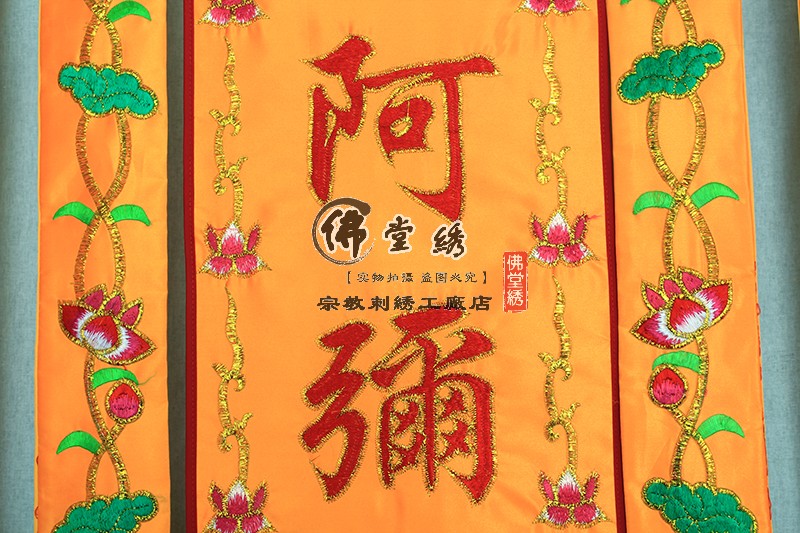 阿
佛堂绣
【实物拍摄 盗图必究】
宗教刺绣工廠店
佛堂绣
彌